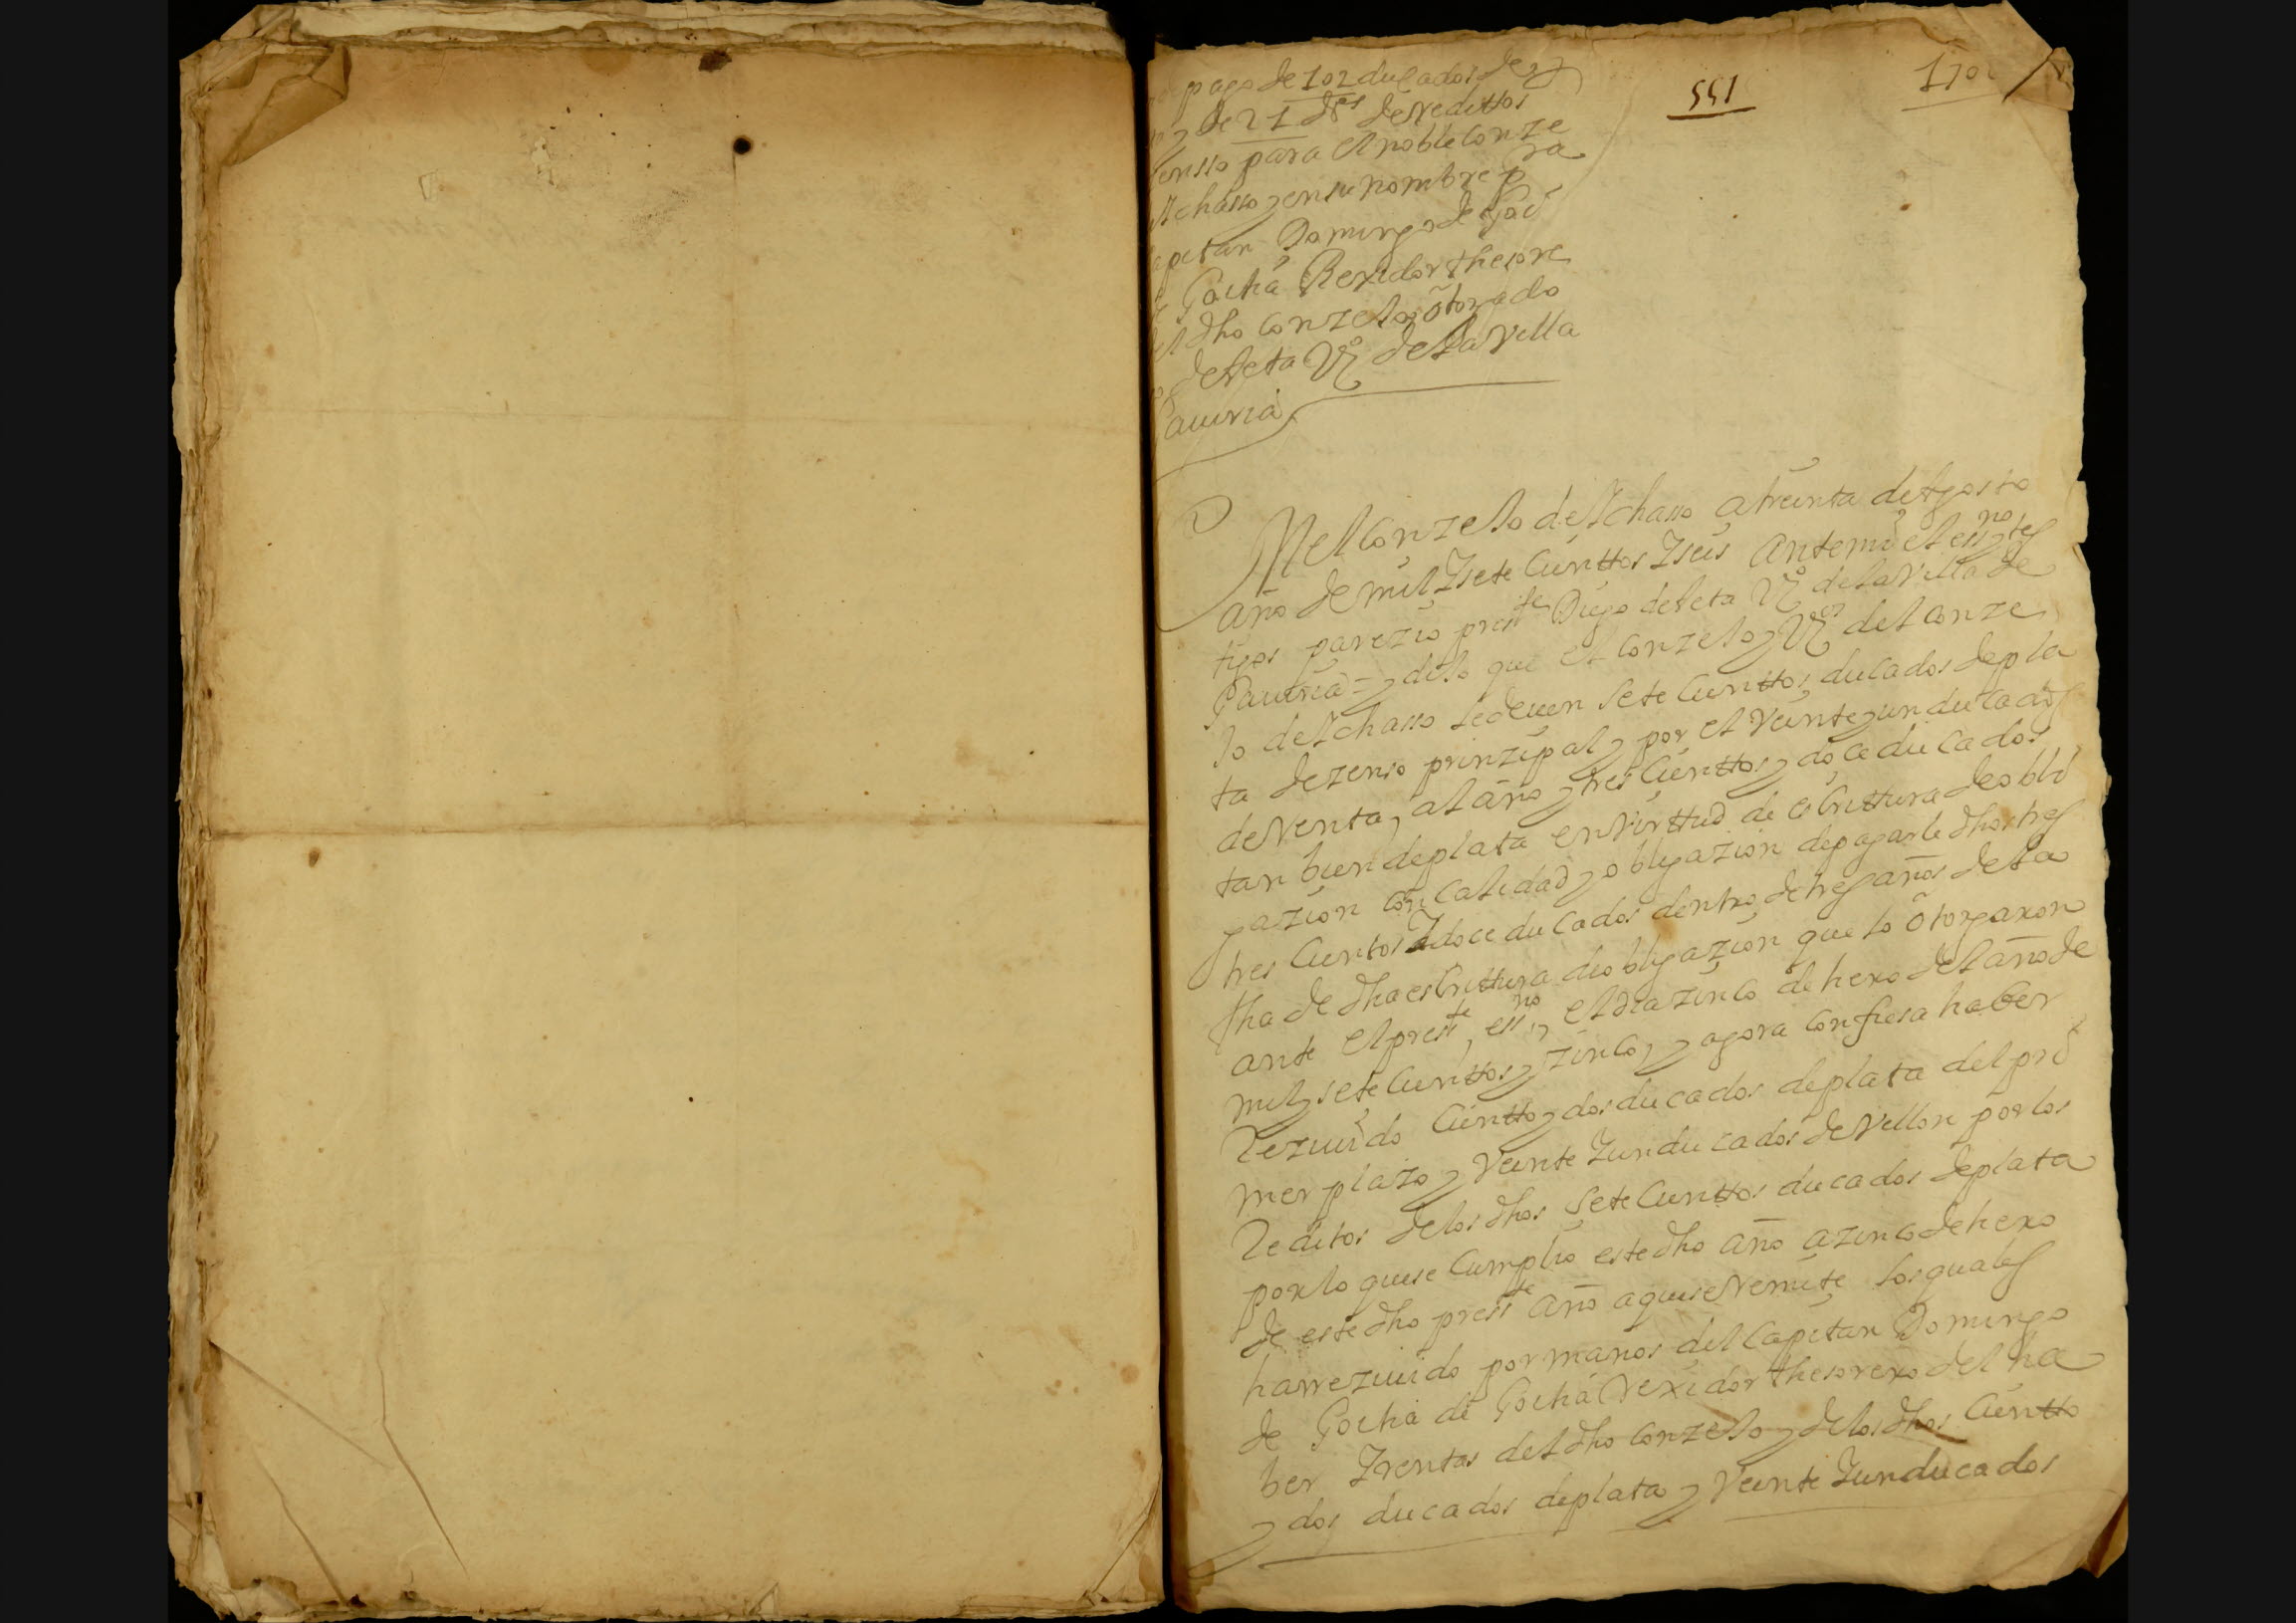 551
170
pago de 102 ducados de
y de 21 d.os de reditos
zensso para el noble Conze
Ychasso y en su nombre p.ra
Capitan Domingo de Goi
Goitia Rexidor thesore
el dho Conzejo, otorgado
de Leta Vº de la Villa
Gauiria
En el Conzejo de Ychasso a treinta de Agosto
año de mil y sete Cienttos y seis ante mi el essno y tes
tigos parezio press.te Diego de Leta Vº de la Villa de
Gauiria = y dijo que el Conzejo y Vºs del Conze
jo de Ychasso le deuen sete Cienttos ducados de pla
ta de zenso prinzipal y por el Veinte y un ducados
de renta, al año y tres Cienttos y doce ducados
tan bien de plata en Virttud de escrittura de obli
gazion con Calidad y obligazion de pagarle dhos tres
tres Cientos y doce ducados dentro de tres años de la
fha de dha escrittura de obligazion que lo otorgaron
ante el press.te essno, el dia zinco de henero del año de
mil y sete Cienttos y zinco, y agora confiesa haber
Reziuido Ciento y dos ducados de plata del pri
mer plazo y Veinte y un ducados de Vellon por los
Reditos de los dhos sete Cienttos ducados de plata
por lo que se Cumplio este dho año a zinco de henero
de este dho press.te año a que se remite los quales
ha rreziuido por manos del Capitan Domingo
de Goitia de Goitia Rexidor thesorero del ha
ber y rentas del dho Conzejo y de los dhos Cientto
y dos ducados de plata y Veinte y un ducados